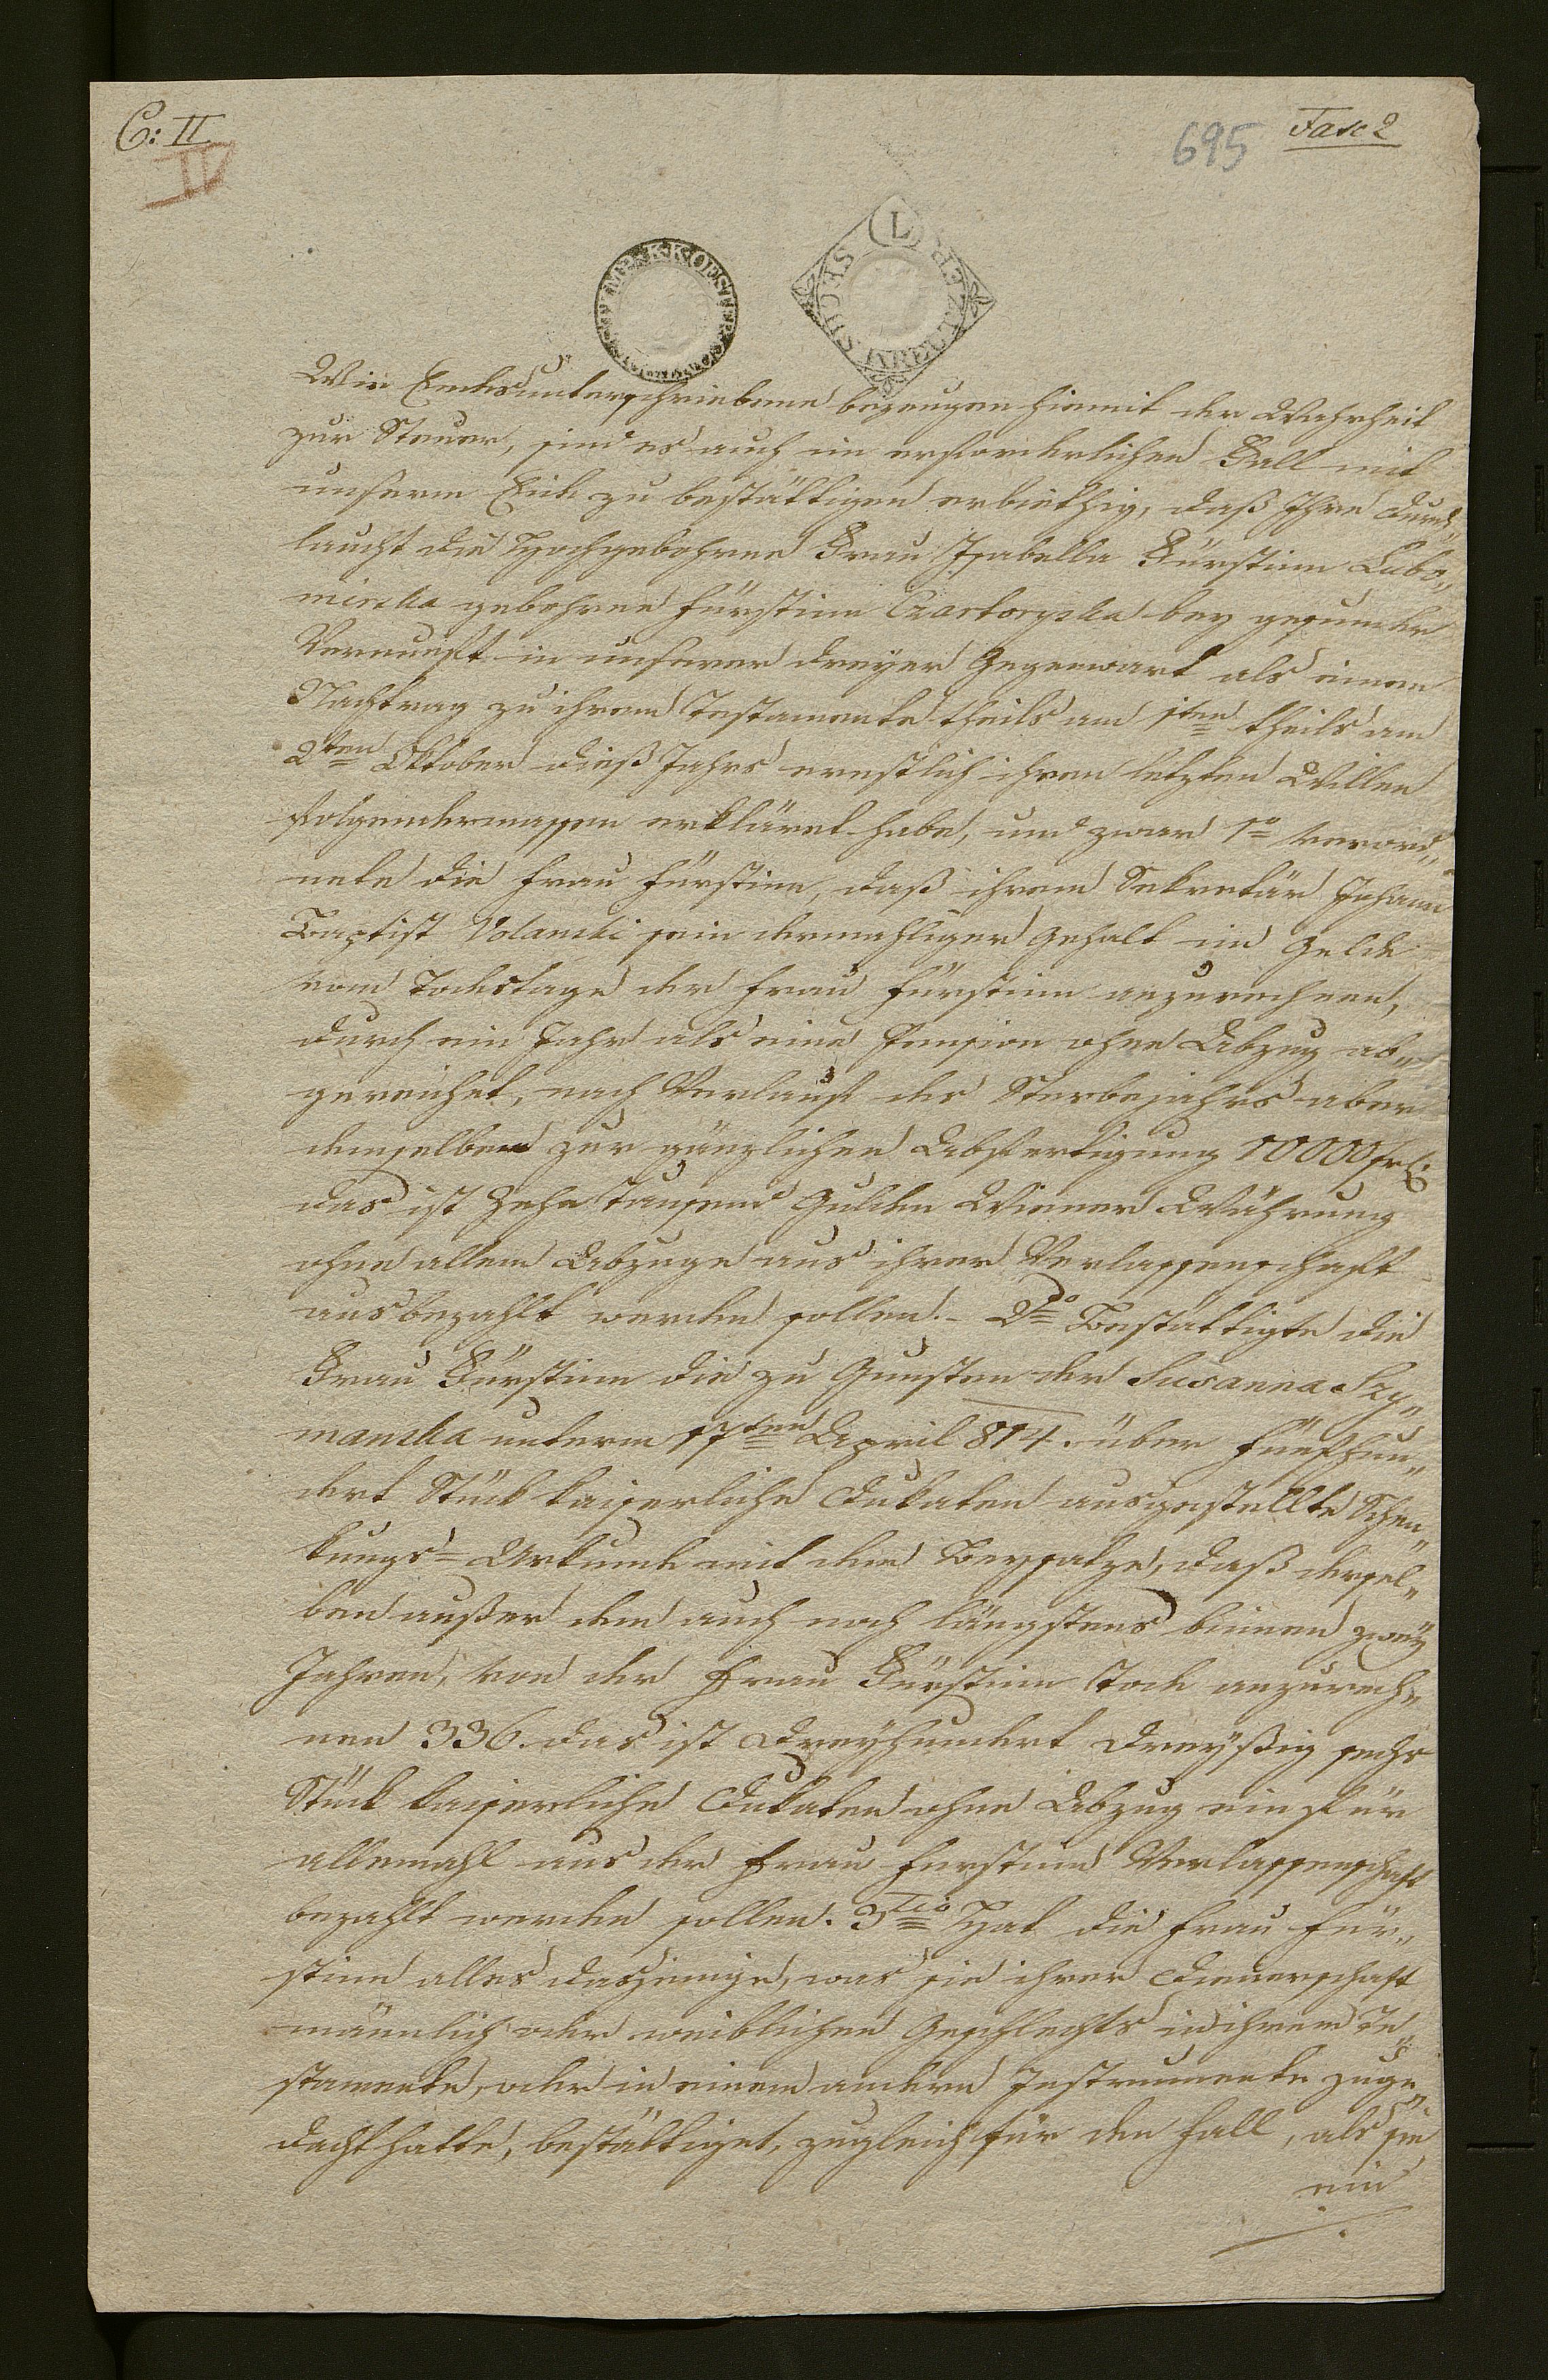 C: II
IV
695
Fasc 2
L
SECHS KREUTZER
Wir Endesunterschriebene bezeugen hiemit der Wahrheit
zur Steuer, sind es auch im erforderlichen Fall mit
unserem Eide zu bestättigen erbiethig, daß Ihre Durch„
laucht die Hochgebohrne Frau Isabella Fürstinn Lubo„
mirska gebohrne Fürstinn Czartoryska bey gesunder
Vernunft in unserer dreyer Gegenwart als einen
Nachtrag zu ihrem Testamente theils am 1ten theils am
2ten Oktober dieß Jahrs ernstlich ihren letzten Willen
folgendermassen erkläret habe, und zwar 1o verord„
nete die Frau Fürstinn, daß ihrem Sekretär Johann
Baptist Volanski sein dermahliger Gehalt im Gelde
vom Todestage der Frau Fürstinn anzurechnen,
durch ein Jahr als eine Pension ohne Abzug ab„
gereichet, nach Verlauf des Sterbejahrs aber
demselben zur gänzlichen Abfertigung 10000
das ist Zehn Tausend Gulden Wiener Währung
ohne allem Abzuge aus ihrer Verlassenschaft
ausbezahlt werden sollen. - 2do Bestättigte die
Frau Fürstinn die zu Gunsten der Susanna Szy„
manska unterm 17ten April 814. über fünfhun„
dert Stück kaiserliche Dukaten ausgestellte Schen„
kungs= Urkunde mit dem Beysatze, daß dersel„
ben außer dem auch noch längstens binnen zwey
Jahren, von der Frau Fürstinn Tode anzurech„
nen 336. das ist Dreyhundert Dreyßig sechs
Stück kaiserliche Dukaten ohne Abzug ein für
allemahl aus der Frau Fürstinn Verlassenschaft
bezahlt werden sollen. 3tio Hat die Frau Für„
stinn alles dasjenige, was sie ihrer Dienerschaft
männlich oder weiblichen Geschlechts in ihrem Te„
stamente, oder in einem andern Instrumente zuge„
dacht hatte, bestättiget, zugleich für den Fall, als sie
ein